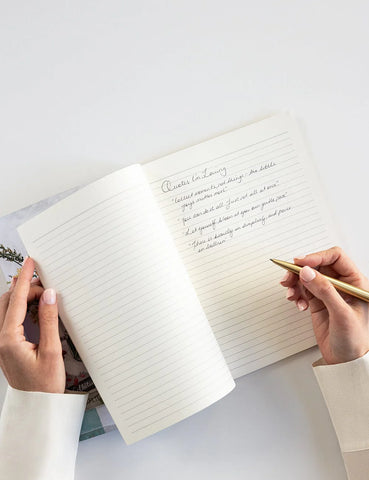 Quotes I'm Loving
"Collect moments, not things - the little
things matter most"
"You can do it all. Just not all at once"
"Let yourself bloom at your own gentle pace"
"There is beauty in simplicity, and power
in stillness"